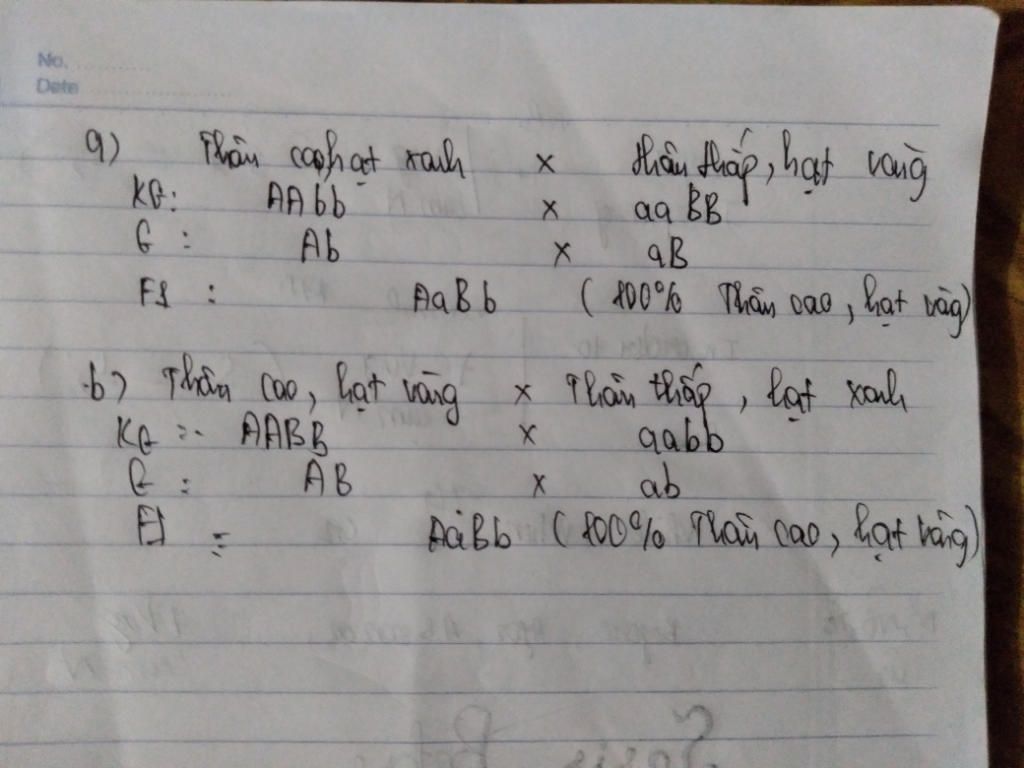 No. ..............
Date ..........................
a) Thân cao, hạt xanh x thân thấp, hạt vàng
KG: AAbb x aaBB
G : Ab x aB
F1 : AaBb (100% Thân cao, hạt vàg)
b) Thân cao, hạt vàng x Thân thấp, hạt xanh
KG :- AABB x aabb
G : AB x ab
F1 : AaBb (100% Thân cao, hạt vàng)